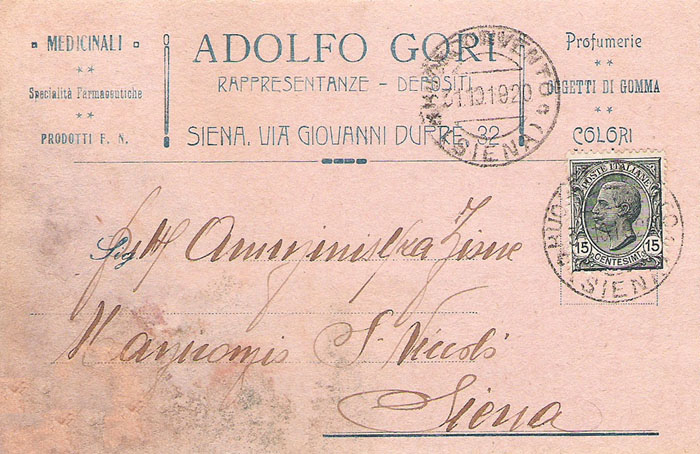 MEDICINALI
Specialità Farmaceutiche
PRODOTTI F. N.
ADOLFO GORI
RAPPRESENTANZE - DEPOSITI
SIENA, VIA GIOVANNI DUPRÈ 32
Profumerie
OGGETTI DI GOMMA
COLORI
BUONCONVENTO
31.10.1920
(SIENA)
POSTE ITALIANE
15 15
CENTESIMI
(SIENA)
Sig
Amministrazione
Manicomio S. Niccolò
Siena